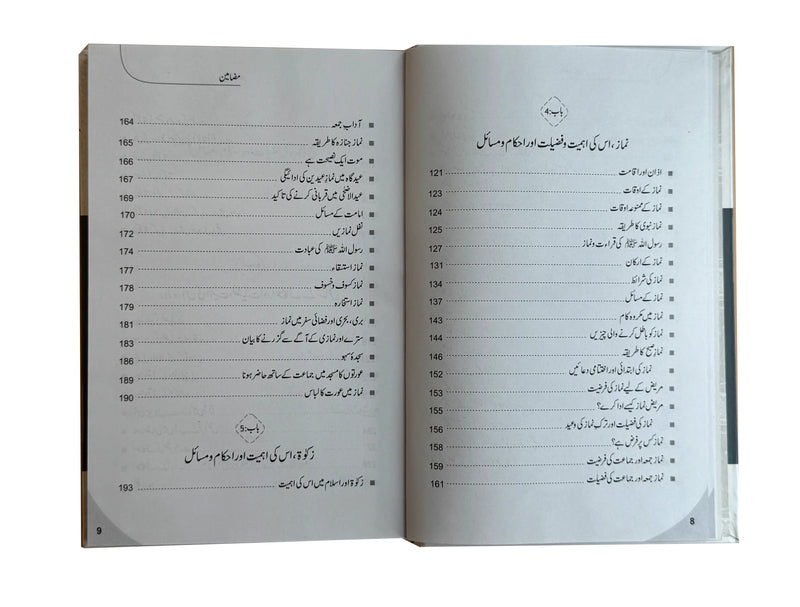 باب:4
نماز، اس کی اہمیت و فضیلت اور احکام و مسائل
اذان اور اقامت 121
نماز کے اوقات 123
نماز کے ممنوعہ اوقات 124
نماز نبوی کا طریقہ 125
رسول اللہ ﷺ کی قراءت و نماز 127
نماز کے ارکان 131
نماز کی شرائط 134
نماز کے مسائل 137
نماز میں مکروہ کام 143
نماز کو باطل کرنے والی چیزیں 144
نماز صبح کا طریقہ 146
نماز کی ابتدائی اور اختتامی دعائیں 152
مریض کے لیے نماز کی فرضیت 153
مریض نماز کیسے ادا کرے؟ 155
نماز کی فضیلت اور ترک نماز کی وعید 156
نماز کس پر فرض ہے؟ 158
نماز جمعہ اور جماعت کی فرضیت 159
نماز جمعہ اور جماعت کی فضیلت 161
8
مضامین
آداب جمعہ 164
نماز جنازہ کا طریقہ 165
موت ایک نصیحت ہے 166
عید گاہ میں نماز عیدین کی ادائیگی 167
عیدالاضحیٰ میں قربانی کرنے کی تاکید 169
امامت کے مسائل 170
نفل نمازیں 172
رسول اللہ ﷺ کی عبادت 174
نماز استسقاء 177
نماز کسوف و خسوف 178
نماز استخارہ 179
بری، بحری اور فضائی سفر میں نماز 181
سترے اور نمازی کے آگے سے گزرنے کا بیان 183
سجدۂ سہو 186
عورتوں کا مسجد میں جماعت کے ساتھ حاضر ہونا 189
نماز میں عورت کا لباس 190
باب:5
زکوٰۃ، اس کی اہمیت اور احکام و مسائل
زکوٰۃ اور اسلام میں اس کی اہمیت 193
9